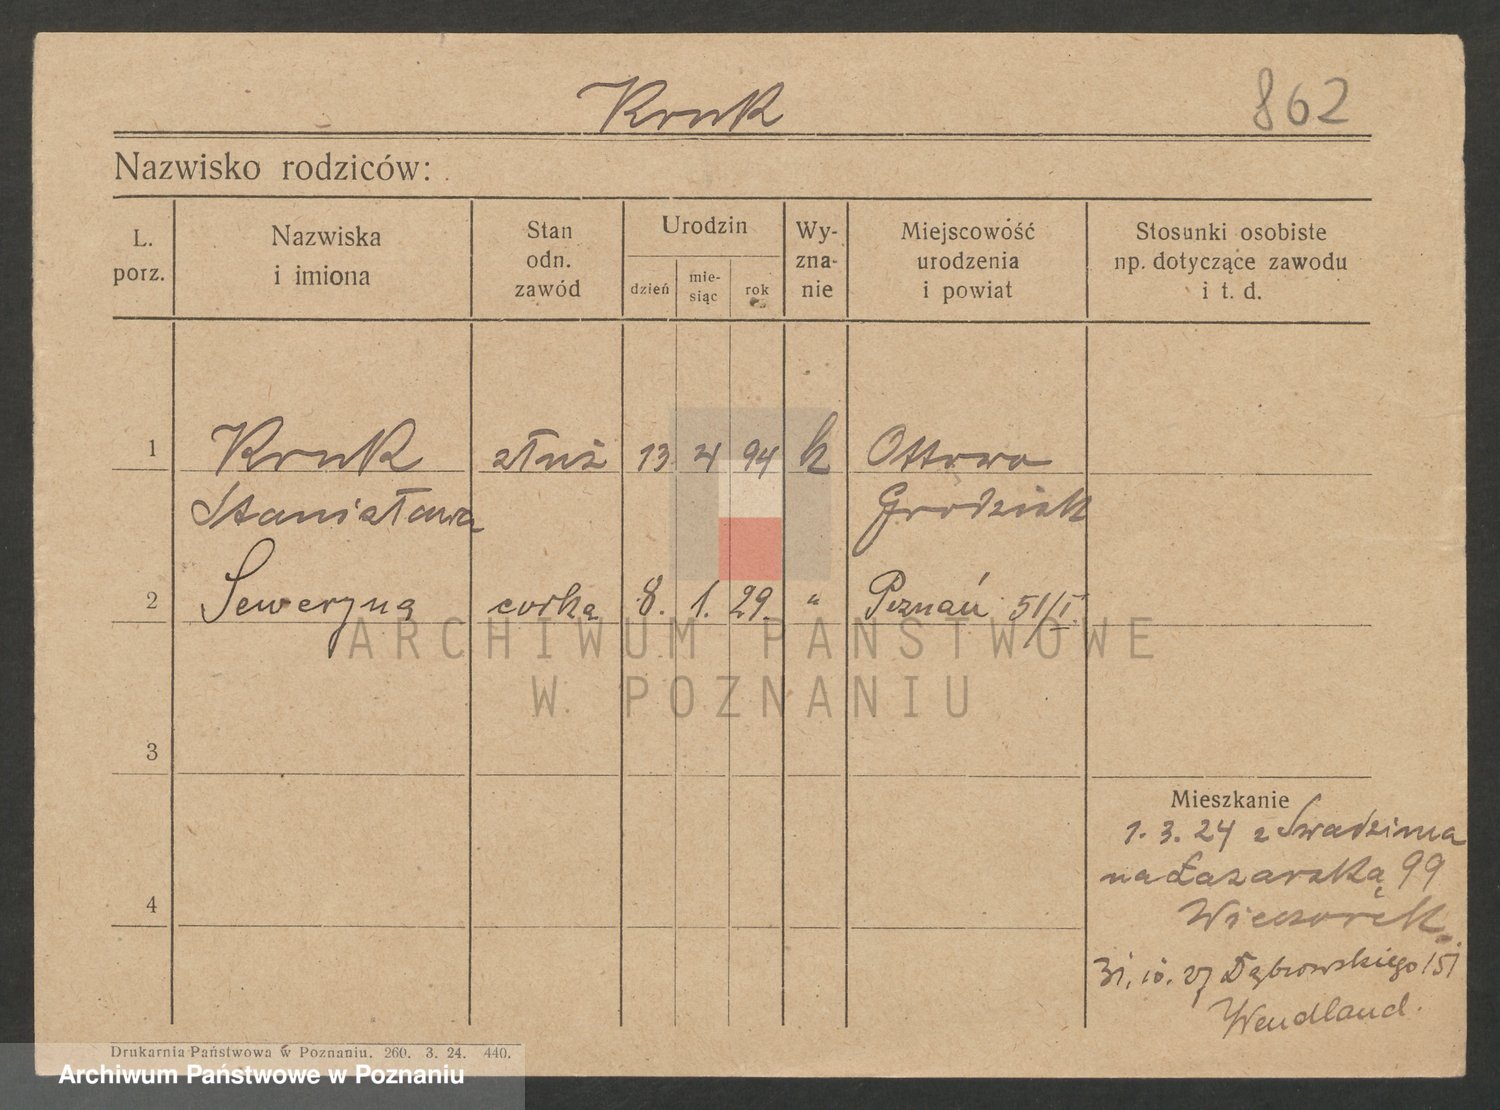 Kruk
862
Nazwisko rodziców:
L. porz.
Nazwiska i imiona
Stan odn. zawód
Urodzin
dzień
mie-siąc
rok
Wy-zna-nie
Miejscowość urodzenia i powiat
Stosunki osobiste np. dotyczące zawodu i t. d.
1 Kruk służ 13 4 94 k Ottowo
Stanisława Grodzisk
2 Seweryna córka 8. 1. 29. " Poznań 51/I
ARCHIWUM PAŃSTWOWE
W POZNANIU
3
Mieszkanie
1. 3. 24 z Swadzima
na Łazarską 99
4
Wieczorek
31. 10. 27 Dąbrowskiego 151
Wendland.
Drukarnia Państwowa w Poznaniu. 260. 3. 24. 440.
Archiwum Państwowe w Poznaniu